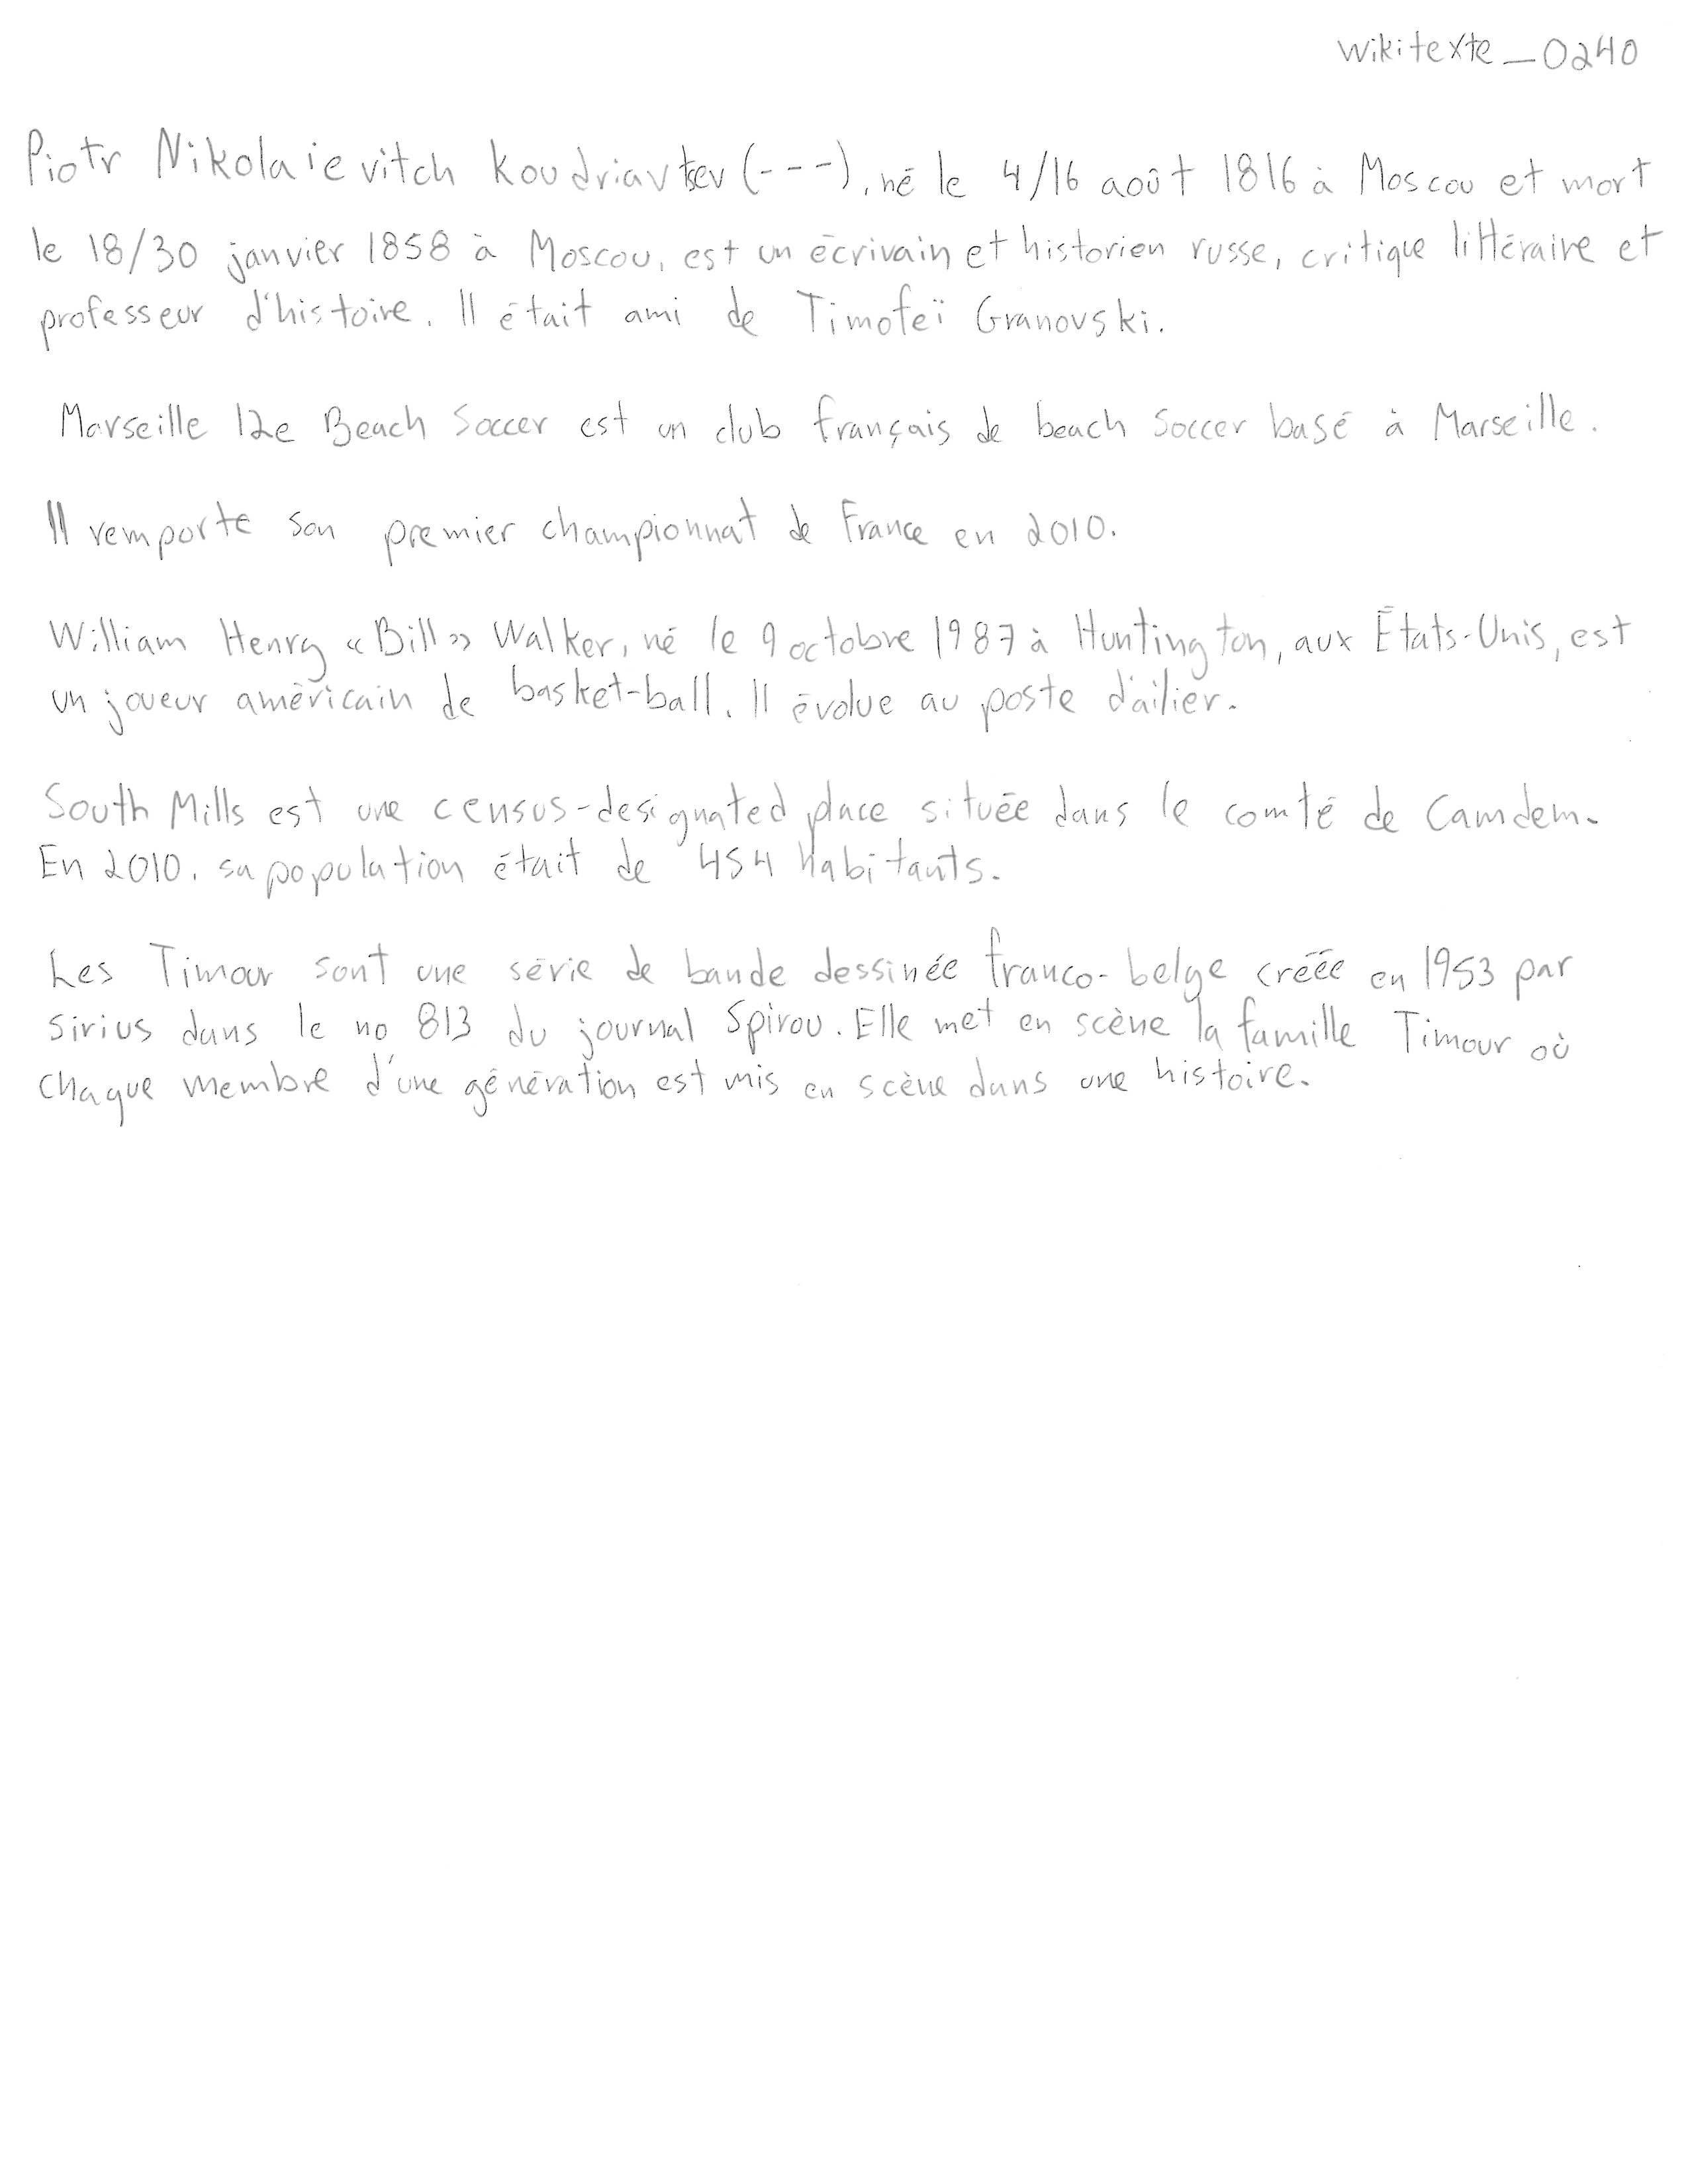 wikitexte_0240
Piotr Nikolaievitch Koudriavtsev (---), né le 4/16 août 1816 à Moscou et mort
le 18/30 janvier 1858 à Moscou, est un écrivain et historien russe, critique littéraire et
professeur d'histoire. Il était ami de Timofeï Granovski.
Marseille 12e Beach Soccer est un club français de beach soccer basé à Marseille.
Il remporte son premier championnat de France en 2010.
William Henry «Bill» Walker, né le 9 octobre 1987 à Huntington, aux États-Unis, est
un joueur américain de basket-ball. Il évolue au poste d'ailier.
South Mills est une census-designated place située dans le comté de Camdem.
En 2010, sa population était de 454 habitants.
Les Timour sont une série de bande dessinée franco-belge créée en 1953 par
Sirius dans le no 813 du journal Spirou. Elle met en scène la famille Timour où
chaque membre d'une génération est mis en scène dans une histoire.